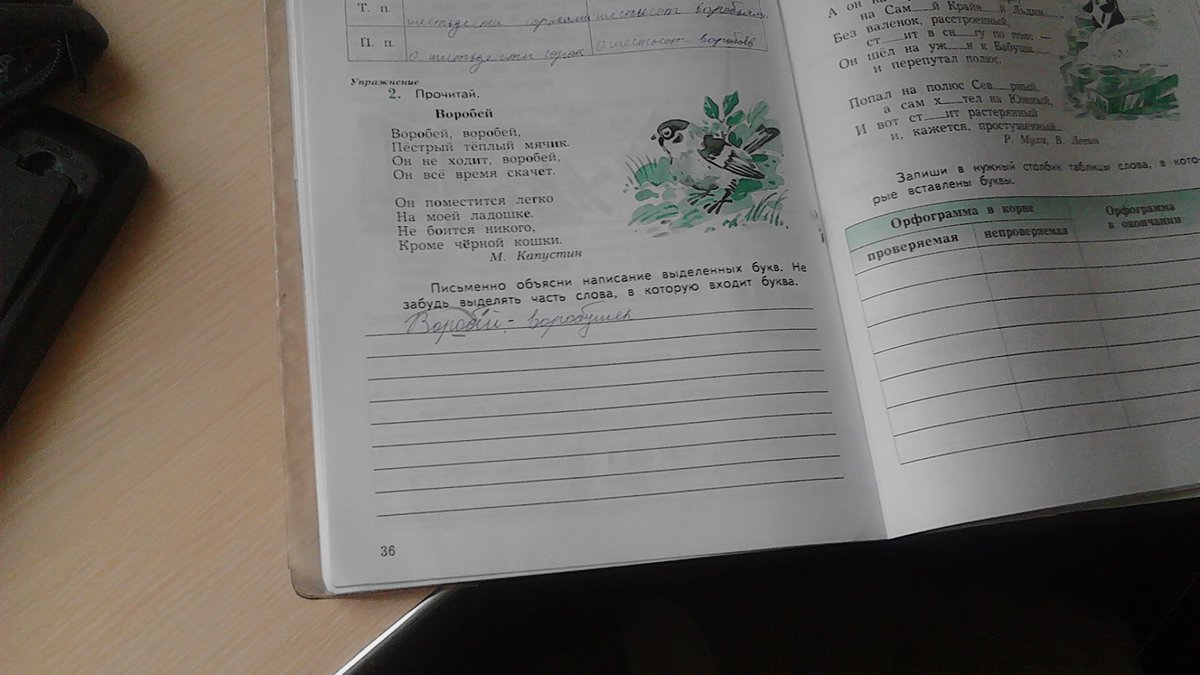 Т. п. шестьдести сороками шестьесот воробьям
П. п. О шестьдести сорок О шестьсот воробьёв
Упражнение
2. Прочитай.
Воробей
Воробей, воробей,
Пёстрый тёплый мячик.
Он не ходит, воробей,
Он всё время скачет.
Он поместится легко
На моей ладошке.
Не боится никого,
Кроме чёрной кошки.
М. Капустин
Письменно объясни написание выделенных букв. Не
забудь выделять часть слова, в которую входит буква.
Воробьи, воробушек
36
А он на
на Сам__й Крайн__й Льдин__,
Без валенок, расстроенный,
ст__ит в сн__гу по пояс —
Он шёл на уж__н к Бабушк__
и перепутал полюс.
Попал на полюс Сев__рный,
а сам х__тел на Южный,
И вот ст__ит растерянный
и, кажется, простуженный.
Р. Муха, В. Левин
Запиши в нужный столбик таблицы слова, в кото-
рые вставлены буквы.
Орфограмма в корне Орфограмма
в окончании
проверяемая непроверяемая